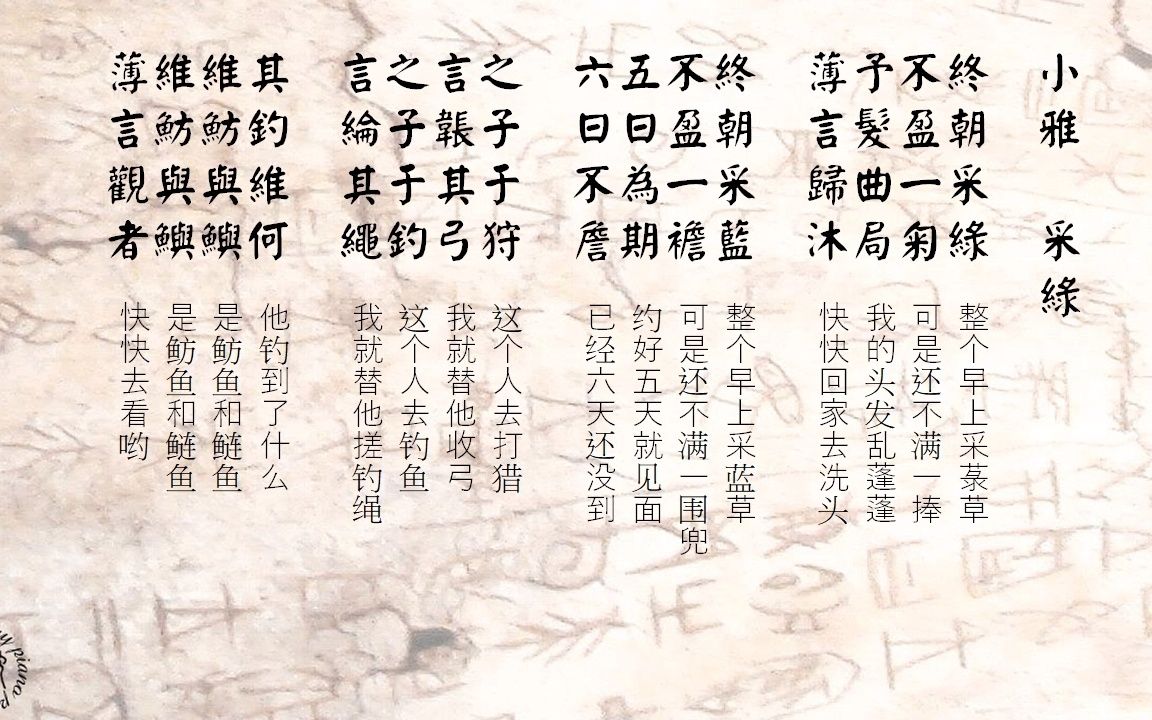 小雅 采綠
終朝采綠
不盈一菊
予髮曲局
薄言歸沐
整个早上采菉草
可是还不满一捧
我的头发乱蓬蓬
快快回家去洗头
終朝采藍
不盈一襜
五日為期
六日不詹
整个早上采蓝草
可是还不满一围兜
约好五天就见面
已经六天还没到
之子于狩
言韔其弓
之子于釣
言綸其繩
这个人去打猎
我就替他收弓
这个人去钓鱼
我就替他搓钓绳
其釣維何
維魴與鱮
維魴與鱮
薄言觀者
他钓到了什么
是鲂鱼和鲢鱼
是鲂鱼和鲢鱼
快快去看哟
piano